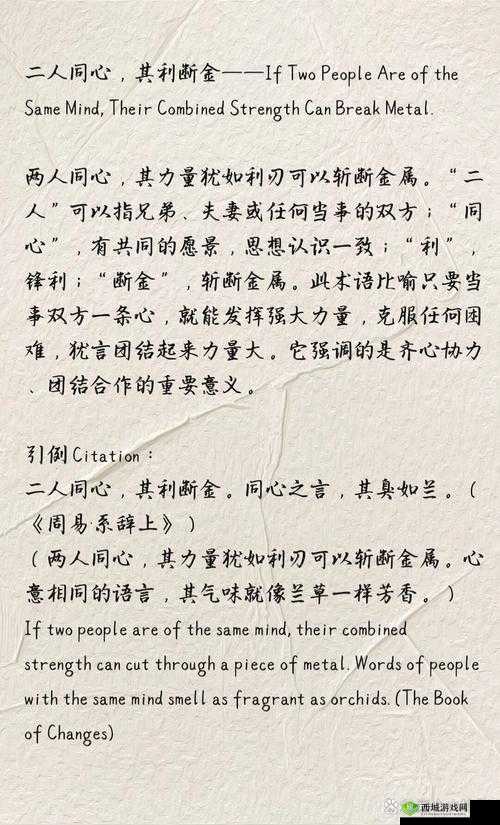 二人同心，其利断金——If Two People Are of the
Same Mind, Their Combined Strength Can Break Metal.
两人同心，其力量犹如利刃可以斩断金属。“二
人”可以指兄弟、夫妻或任何当事的双方；“同
心”，有共同的愿景，思想认识一致；“利”，
锋利；“断金”，斩断金属。此术语比喻只要当
事双方一条心，就能发挥强大力量，克服任何困
难，犹言团结起来力量大。它强调的是齐心协力
、团结合作的重要意义。
引例 Citation：
二人同心，其利断金。同心之言，其臭如兰。（
《周易·系辞上》）
（两人同心，其力量犹如利刃可以斩断金属。心
意相同的语言，其气味就像兰草一样芳香。）
If two people are of the same mind, their combined
strength can cut through a piece of metal. Words of people
with the same mind smell as fragrant as orchids. (The Book
of Changes)
西城游戏网